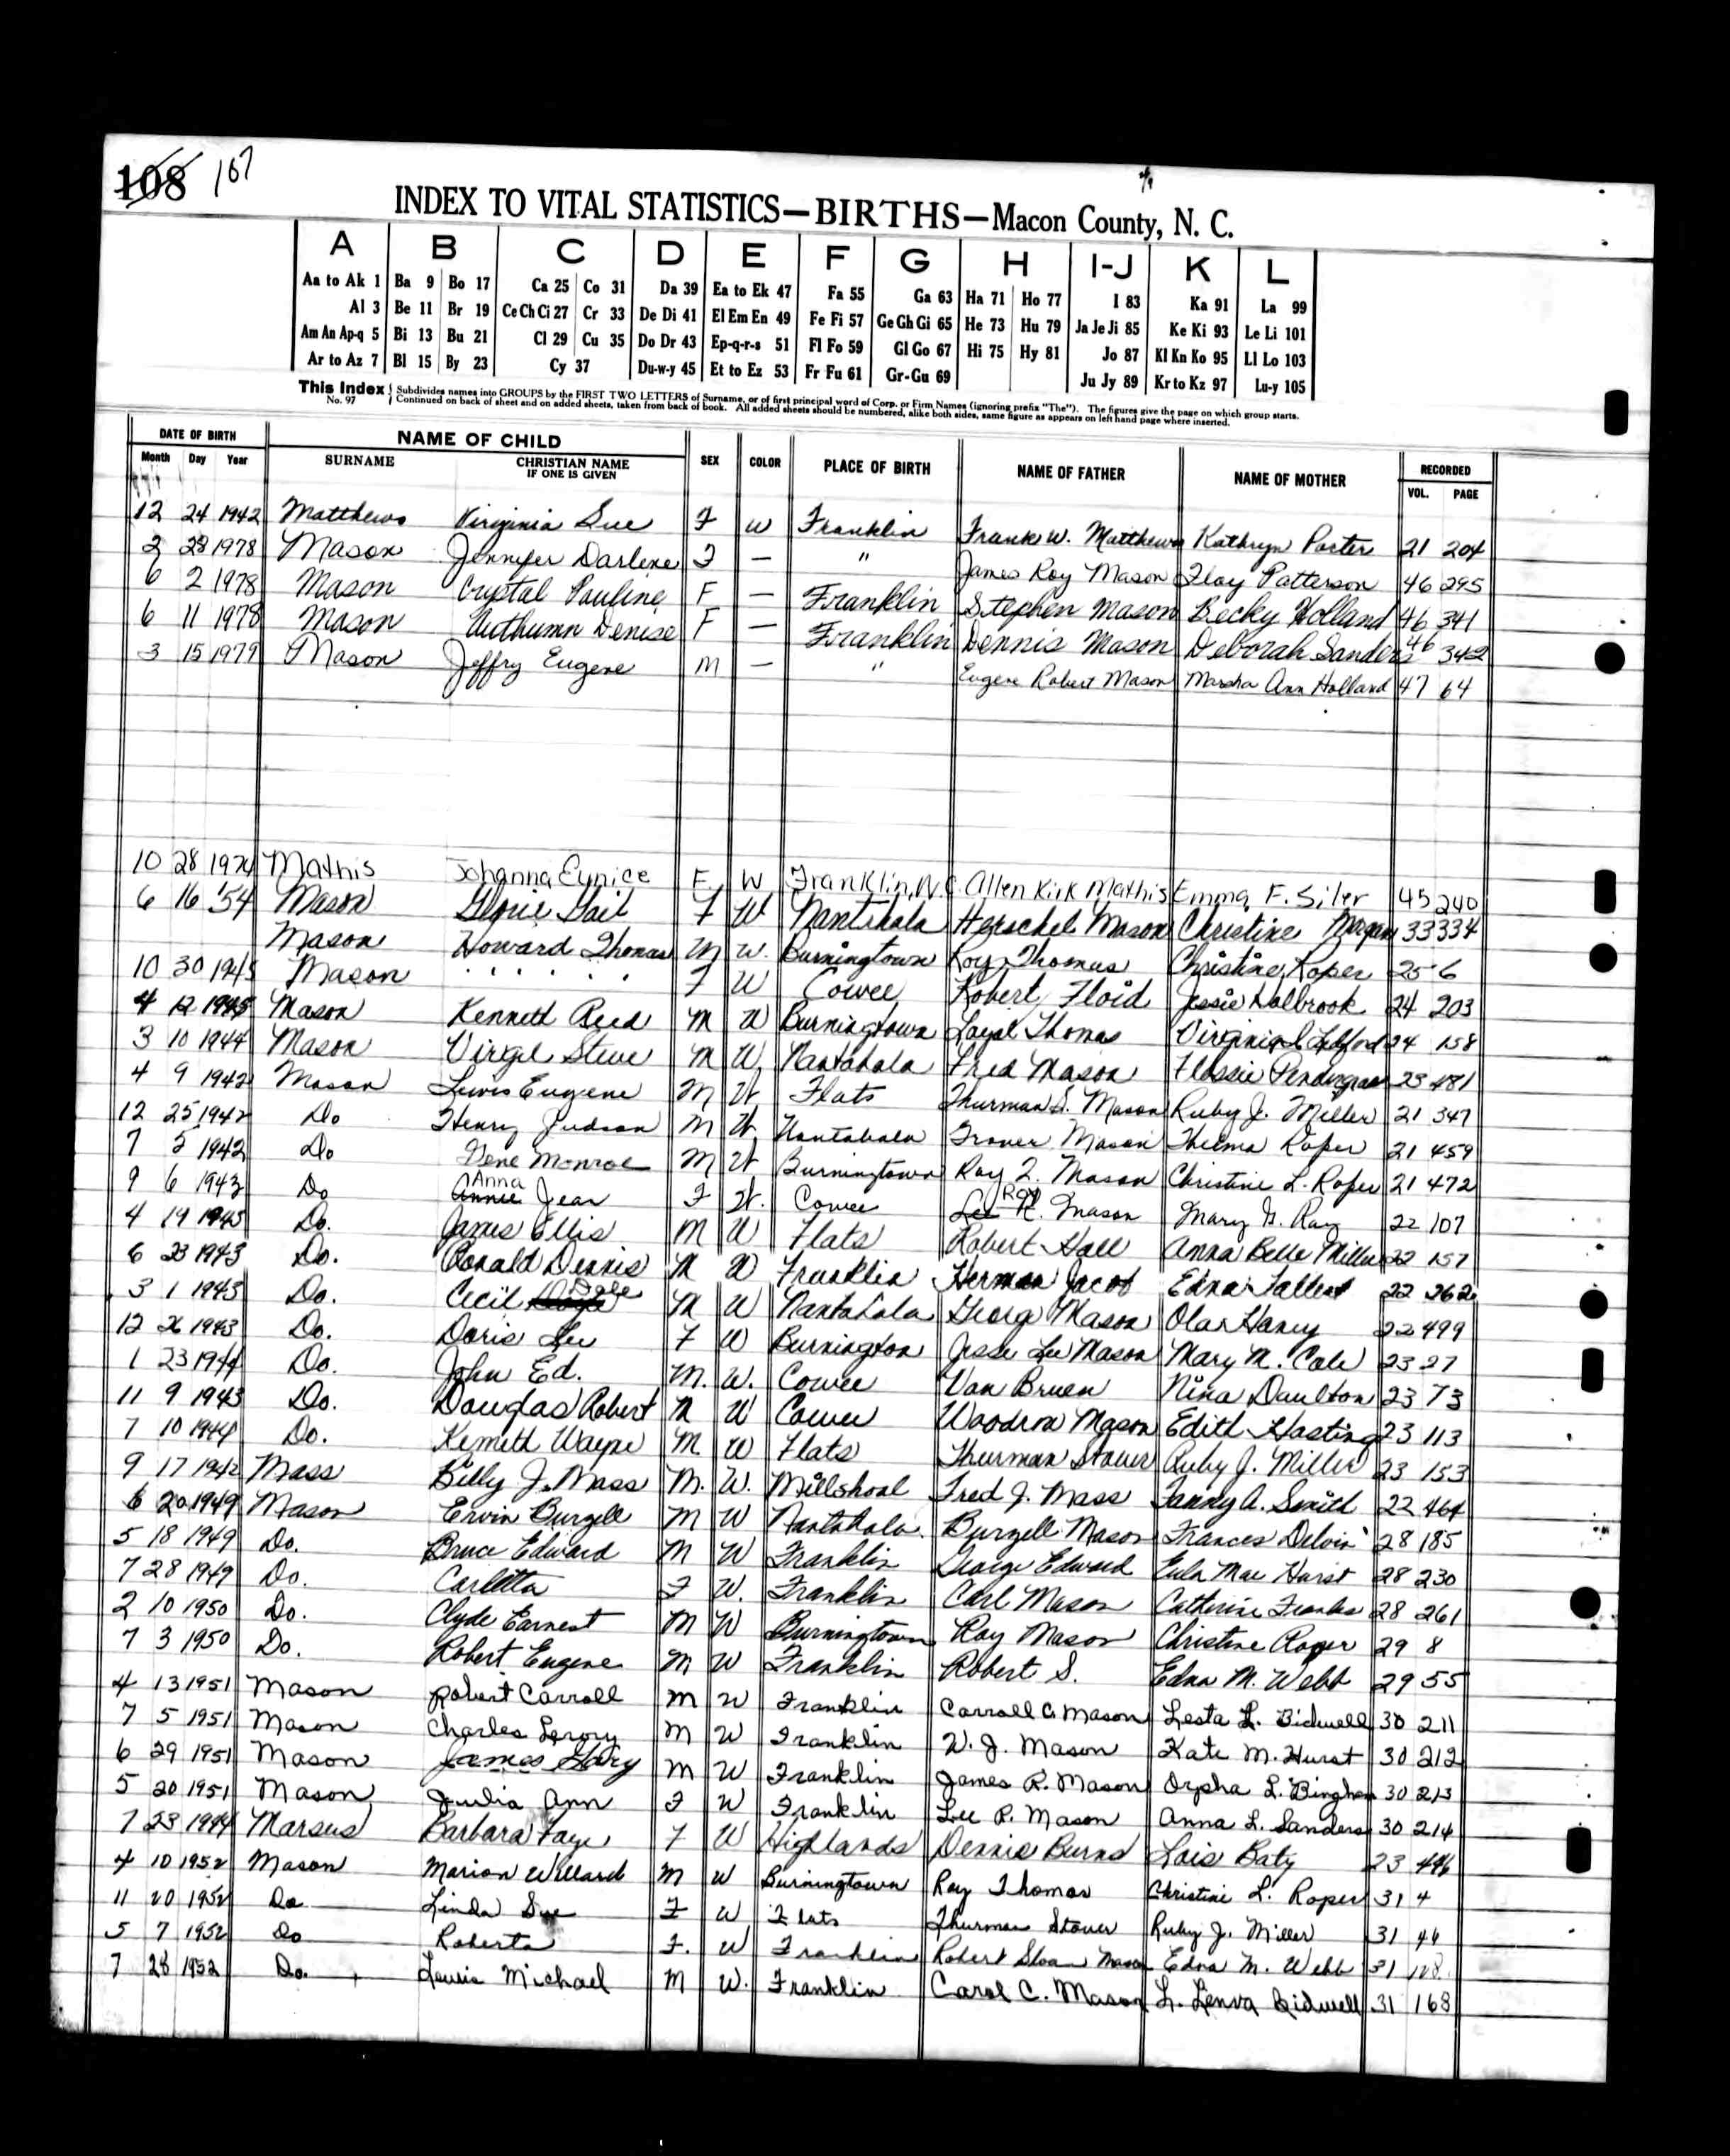 108 107
INDEX TO VITAL STATISTICS—BIRTHS—Macon County, N. C.
A B C D E F G H I-J K L
Aa to Ak 1 Ba 9 Bo 17 Ca 25 Co 31 Da 39 Ea to Ek 47 Fa 55 Ga 63 Ha 71 Ho 77 I 83 Ka 91 La 99
Al 3 Be 11 Br 19 Ce Ch Ci 27 Cr 33 De Di 41 El Em En 49 Fe Fi 57 Ge Gh Gi 65 He 73 Hu 79 Ja Je Ji 85 Ke Ki 93 Le Li 101
Am An Ap-q 5 Bi 13 Bu 21 Cl 29 Cu 35 Do Dr 43 Ep-q-r-s 51 Fl Fo 59 Gl Go 67 Hi 75 Hy 81 Jo 87 Kl Kn Ko 95 Ll Lo 103
Ar to Az 7 Bl 15 By 23 Cy 37 Du-w-y 45 Et to Ez 53 Fr Fu 61 Gr-Gu 69 Ju Jy 89 Kr to Kz 97 Lu-y 105
This Index No. 97 Subdivides names into GROUPS by the FIRST TWO LETTERS of Surname, or of first principal word of Corp. or Firm Names (ignoring prefix "The"). The figures give the page on which group starts.
Continued on back of sheet and on added sheets, taken from back of book. All added sheets should be numbered, alike both sides, same figure as appears on left hand page where inserted.
DATE OF BIRTH NAME OF CHILD SEX COLOR PLACE OF BIRTH NAME OF FATHER NAME OF MOTHER RECORDED
Month Day Year SURNAME CHRISTIAN NAME IF ONE IS GIVEN VOL. PAGE
12 24 1942 Matthews Virginia Sue F W Franklin Frank W. Matthews Kathryn Porter 21 204
2 28 1978 Mason Jennifer Darlene F — " James Roy Mason Floy Patterson 46 295
6 2 1978 Mason Crystal Pauline F — Franklin Stephen Mason Becky Holland 46 341
6 11 1978 Mason Authumn Denise F — Franklin Dennis Mason Deborah Sanders 46 342
3 15 1979 Mason Jeffry Eugene M — " Eugene Robert Mason Marsha Ann Holland 47 64
10 28 1974 Mathis Johanna Eynice F. W Franklin, N.C. Allen Kirk Mathis Emma F. Siler 45 240
6 16 '54 Mason Gail F W Nantahala Herschel Mason Christine Morgan 33 334
Mason Howard Thomas M W. Burningtown Roy Thomas Christine Roper 25 6
10 30 1945 Mason . . . . . . F W Cowee Robert Floid Jessie Holbrook 24 203
4 12 1945 Mason Kenneth Reed M W Burningtown Loyal Thomas Virginia Ledford 24 158
3 10 1944 Mason Virgil Steve M W Nantahala Fred Mason Flossie Pendergrass 23 481
4 9 1942 Mason Lewis Eugene M W Flats Thurman S. Mason Ruby J. Miller 21 347
12 25 1942 Do Henry Judson M W Nantahala Grover Mason Thelma Roper 21 459
7 5 1942 Do Gene Monroe M W Burningtown Roy T. Mason Christine L. Roper 21 472
9 6 1943 Do Annie Anna Jean F W. Cowee Lee Roy R. Mason Mary G. Ray 22 107
4 19 1943 Do. James Ellis M W Flats Robert Hall Anna Belle Miller 22 157
6 23 1943 Do. Ronald Dennis M W Franklin Herman Jacob Edna Tallent 22 262
3 1 1943 Do. Cecil Dale M W Nantahala George Mason Ola Haney 22 499
12 26 1943 Do. Doris Lee F W Burnington Jesse Lee Mason Mary M. Cole 23 27
1 23 1944 Do. John Ed. M. W. Cowee Van Bruen Nina Daulton 23 73
11 9 1943 Do. Douglas Robert M W Cowee Woodrow Mason Edith Hasting 23 113
7 10 1944 Do. Kenneth Wayne M W Flats Thurman Stover Ruby J. Miller 23 153
9 17 1942 Mass Billy J. Mass M. W. Millshoal Fred J. Mass Fanny A. Smith 22 464
6 20 1949 Mason Ervin Burzell M W Nantahala Burzell Mason Frances 28 185
5 18 1949 Do. Bruce Edward M W Franklin George Edward Eula Mae Hurst 28 230
7 28 1949 Do. Carletta F W. Franklin Carl Mason Catherine Franks 28 261
2 10 1950 Do. Clyde Earnest M W Burningtown Roy Mason Christine Roper 29 8
7 3 1950 Do. Robert Eugene M W Franklin Robert S. Edna M. Webb 29 55
4 13 1951 Mason Robert Carroll M W Franklin Carroll C. Mason Lesta L. Bidwell 30 211
7 5 1951 Mason Charles Leroy M W Franklin W. J. Mason Kate M. Hurst 30 212
6 29 1951 Mason James Gary M W Franklin James R. Mason Orpha L. Bingham 30 213
5 20 1951 Mason Julia Ann F W Franklin Lee R. Mason Anna L. Sanders 30 214
7 23 1944 Marsus Barbara Faye F W Highlands Dennis Burns Lois Baty 23 496
4 10 1952 Mason Marion Willard M W Burningtown Roy Thomas Christine L. Roper 31 4
11 20 1952 Do Linda Sue F W Flats Thurman Stover Ruby J. Miller 31 46
5 7 1952 Do Roberta F. W Franklin Robert Sloan Mason Edna M. Webb 31 128
7 28 1952 Do. Lewis Michael M W. Franklin Carol C. Mason L. Lenva Bidwell 31 168